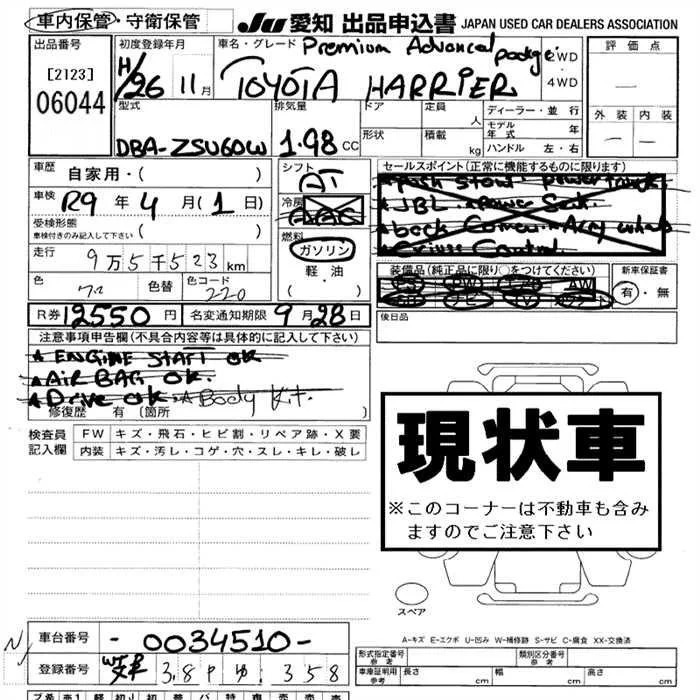 車内保管・守衛保管 JU 愛知 出品申込書 JAPAN USED CAR DEALERS ASSOCIATION
出品番号 [2123] 06044
初度登録年月 H/26 11月
車名・グレード Premium Advanced package
TOYOTA HARRIER
2WD・4WD
評価点 —
外装 — 内装 —
型式 DBA-ZSU60W
排気量 1.98 CC
ドア 定員 人
形状 積載 kg
ディーラー・並行
モデル年式 年
ハンドル 左・右
車歴 自家用・( )
車検 R9年4月(1日)
受検形態 ( )
車検付きのみ記入して下さい
走行 9万5千523km
色 色替 色コード 220
シフト AT
冷房 AAC
燃料 ガソリン・軽油
セールスポイント(正常に機能するものに限ります)
★push start
★JBL ★power Seat.
★back Camera
★Cruise Control
装備品(純正品に限り○をつけてください)
PS PW AW
ナビ TV
新車保証書 有・無
R券 12550円 名変通知期限 9月28日
後日品
注意事項申告欄(不具合内容等は具体的に記入して下さい)
★ENGINE START OK
★AIR BAG OK.
★Drive ok. ★Body Kit.
修復歴 有(箇所 )
検査員記入欄
FW キズ・飛石・ヒビ割・リペア跡・X要
内装 キズ・汚レ・コゲ・穴・スレ・キレ・破レ
現状車
※このコーナーは不動車も含みますのでご注意下さい
スペア
A-キズ E-エクボ U-凹み W-補修跡 S-サビ C-腐食 XX-交換済
車台番号 -0034510-
登録番号 38 ゆ 358
N
形式指定番号 参考 類別区分番号 参考
車庫証明用 参考 長さ cm 幅 cm 高さ cm